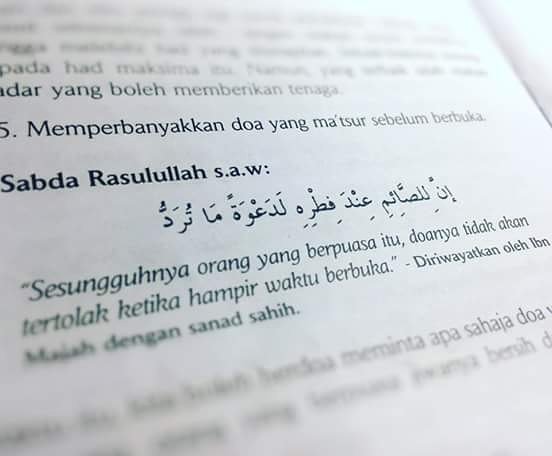 pada had maksima itu. Namun, yang
adar yang boleh memberikan tenaga.
5. Memperbanyakkan doa yang ma'tsur sebelum berbuka.
Sabda Rasulullah s.a.w:
إِنَّ لِلصَّائِمِ عِنْدَ فِطْرِهِ لَدَعْوَةً مَا تُرَدُّ
"Sesungguhnya orang yang berpuasa itu, doanya tidak akan
tertolak ketika hampir waktu berbuka." - Diriwayatkan oleh Ibn
Majah dengan sanad sahih.
meminta apa sahaja doa